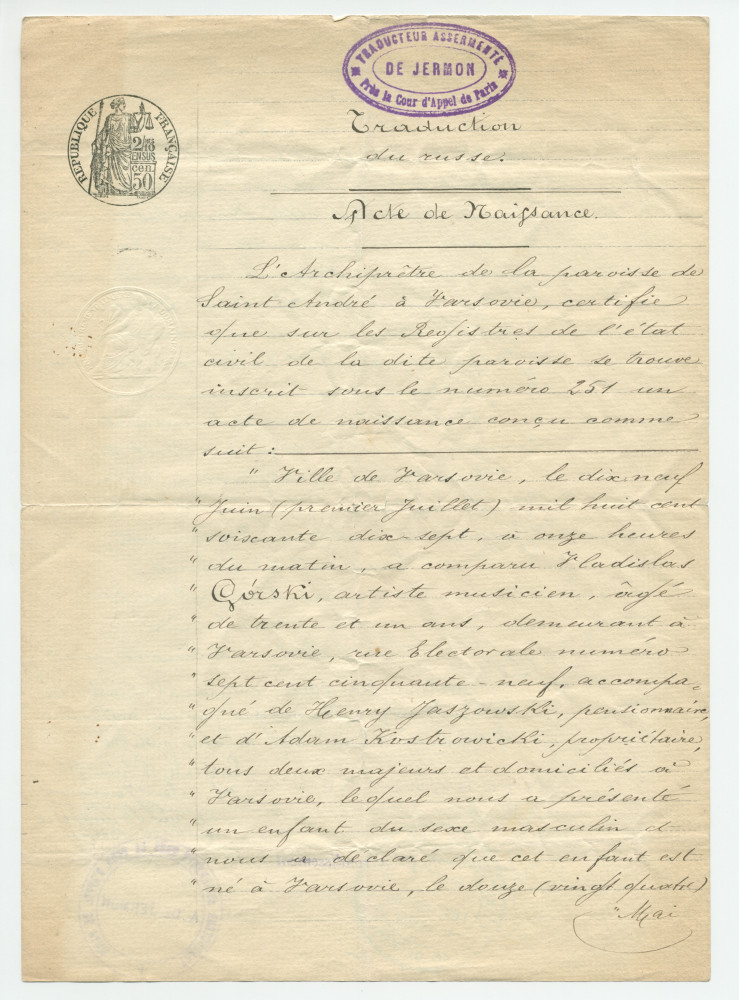 TRADUCTEUR ASSERMENTÉ
DE JERMON
Près la Cour d'Appel de Paris
RÉPUBLIQUE FRANÇAISE
2/10
EN SUS
cen.
50
Traduction
du russe.
Acte de Naissance.
L'Archiprêtre de la paroisse de
Saint André à Varsovie, certifie
que sur les Registres de l'état
civil de la dite paroisse se trouve
inscrit sous le numéro 251 un
acte de naissance conçu comme
suit :
" Ville de Varsovie, le dix neuf
" Juin (premier Juillet) mil huit cent
" soixante dix-sept, à onze heures
" du matin, a comparu Vladislas
" Górski, artiste musicien, âgé
" de trente et un ans, demeurant à
" Varsovie, rue Electorale numéro
" sept cent cinquante-neuf, accompa=
" gné de Henry Jaszowski, pensionnaire,
" et d'Adam Kostrowicki, propriétaire,
" tous deux majeurs et domiciliés à
" Varsovie, lequel nous a présenté
" un enfant du sexe masculin et
" nous a déclaré que cet enfant est
" né à Varsovie, le douze (vingt quatre)
" Mai